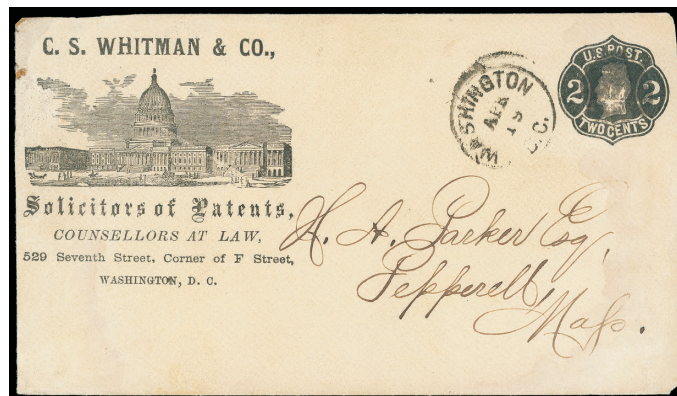 C. S. WHITMAN & CO.,
Solicitors of Patents,
COUNSELLORS AT LAW,
529 Seventh Street, Corner of F Street,
WASHINGTON, D. C.
WASHINGTON
APR
19
D.C.
U.S. POST.
2 2
TWO CENTS
H. A. Parker Esq,
Pepperell
Mass.